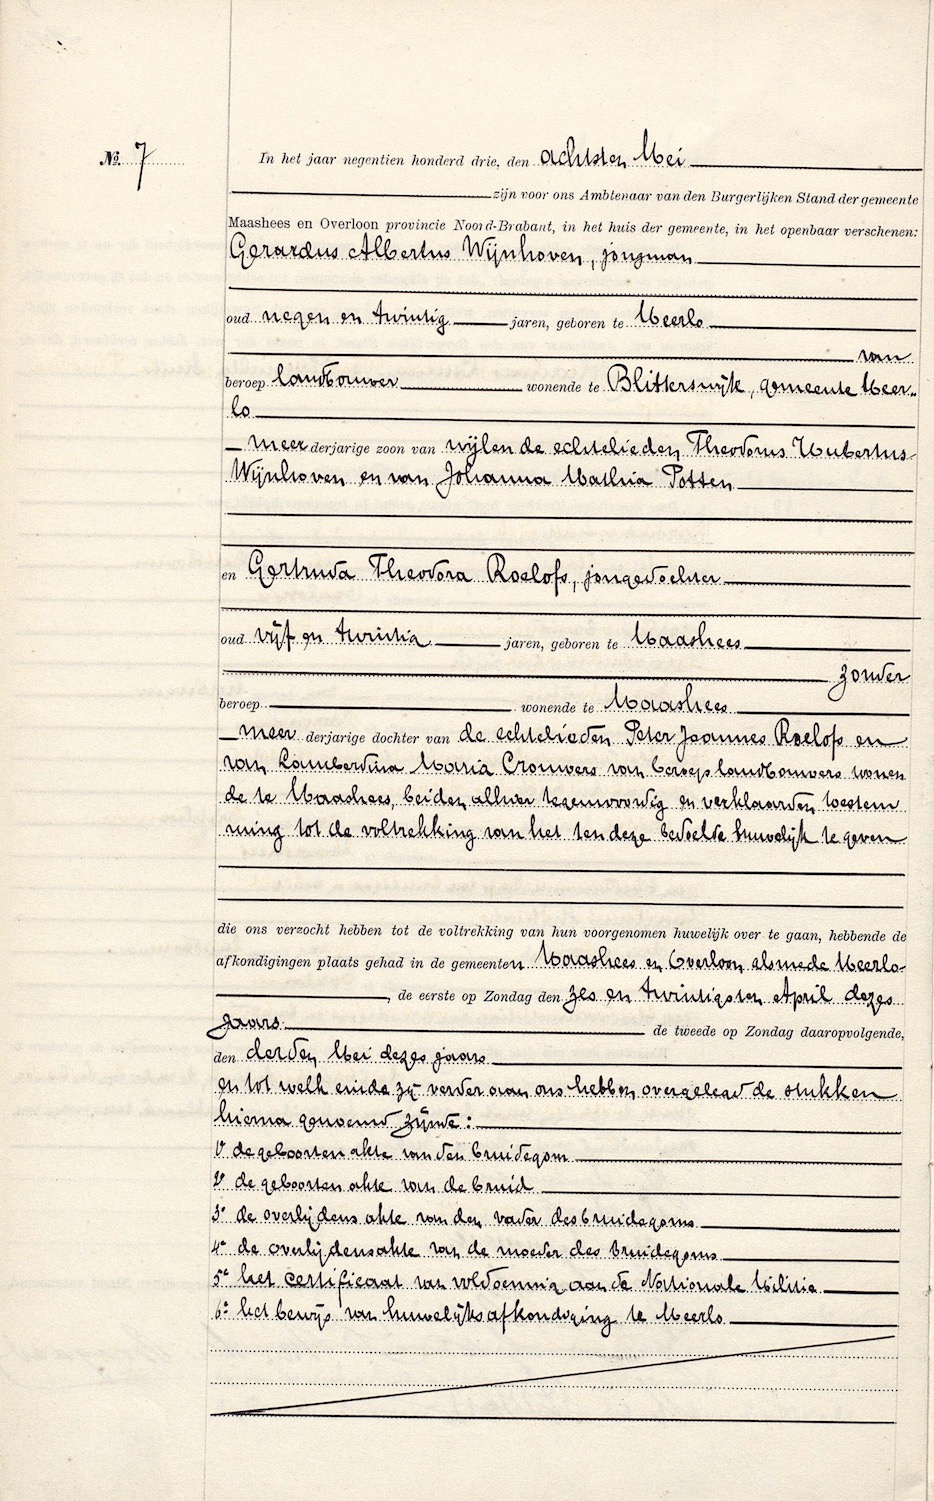 No. 7
In het jaar negentien honderd drie, den achtsten Mei
zijn voor ons Ambtenaar van den Burgerlijken Stand der gemeente
Maashees en Overloon provincie Noord-Brabant, in het huis der gemeente, in het openbaar verschenen:
Gerardus Albertus Wijnhoven, jongman
oud negen en twintig jaren, geboren te Meerlo
van
beroep landbouwer wonende te Blitterswijk, gemeente Meer-
lo
meer derjarige zoon van wijlen de echtelieden Theodorus Hubertus
Wijnhoven en van Johanna Mathia Potten
en Gertruda Theodora Roelofs, jongedochter
oud vijf en twintig jaren, geboren te Maashees
zonder
beroep wonende te Maashees
meer derjarige dochter van de echtelieden Peter Joannes Roelofs en
van Lamberdina Maria Crouwers van beroep landbouwers wonen
de te Maashees, beiden alhier tegenwoordig en verklaarden toestem
ming tot de voltrekking van het ten deze bedoelde huwelijk te geven
die ons verzocht hebben tot de voltrekking van hun voorgenomen huwelijk over te gaan, hebbende de
afkondigingen plaats gehad in de gemeenten Maashees en Overloon alsmede Meerlo
, de eerste op Zondag den zes en twintigsten April dezes
jaars de tweede op Zondag daaropvolgende,
den derden Mei dezes jaars
en tot welk einde zij verder aan ons hebben overgelegd de stukken
hierna genoemd zijnde:
1o de geboorten akte van den bruidegom
2o de geboorten akte van de bruid
3o de overlijdens akte van den vader des bruidegoms
4o de overlijdensakte van de moeder des bruidegoms
5o het certificaat van voldoening aan de Nationale Militie
6o het bewijs van huwelijksafkondiging te Meerlo